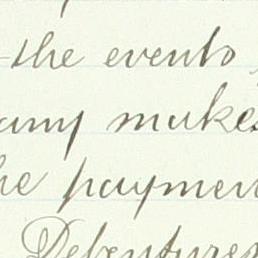 the events
any makes
he paymen
Debentures